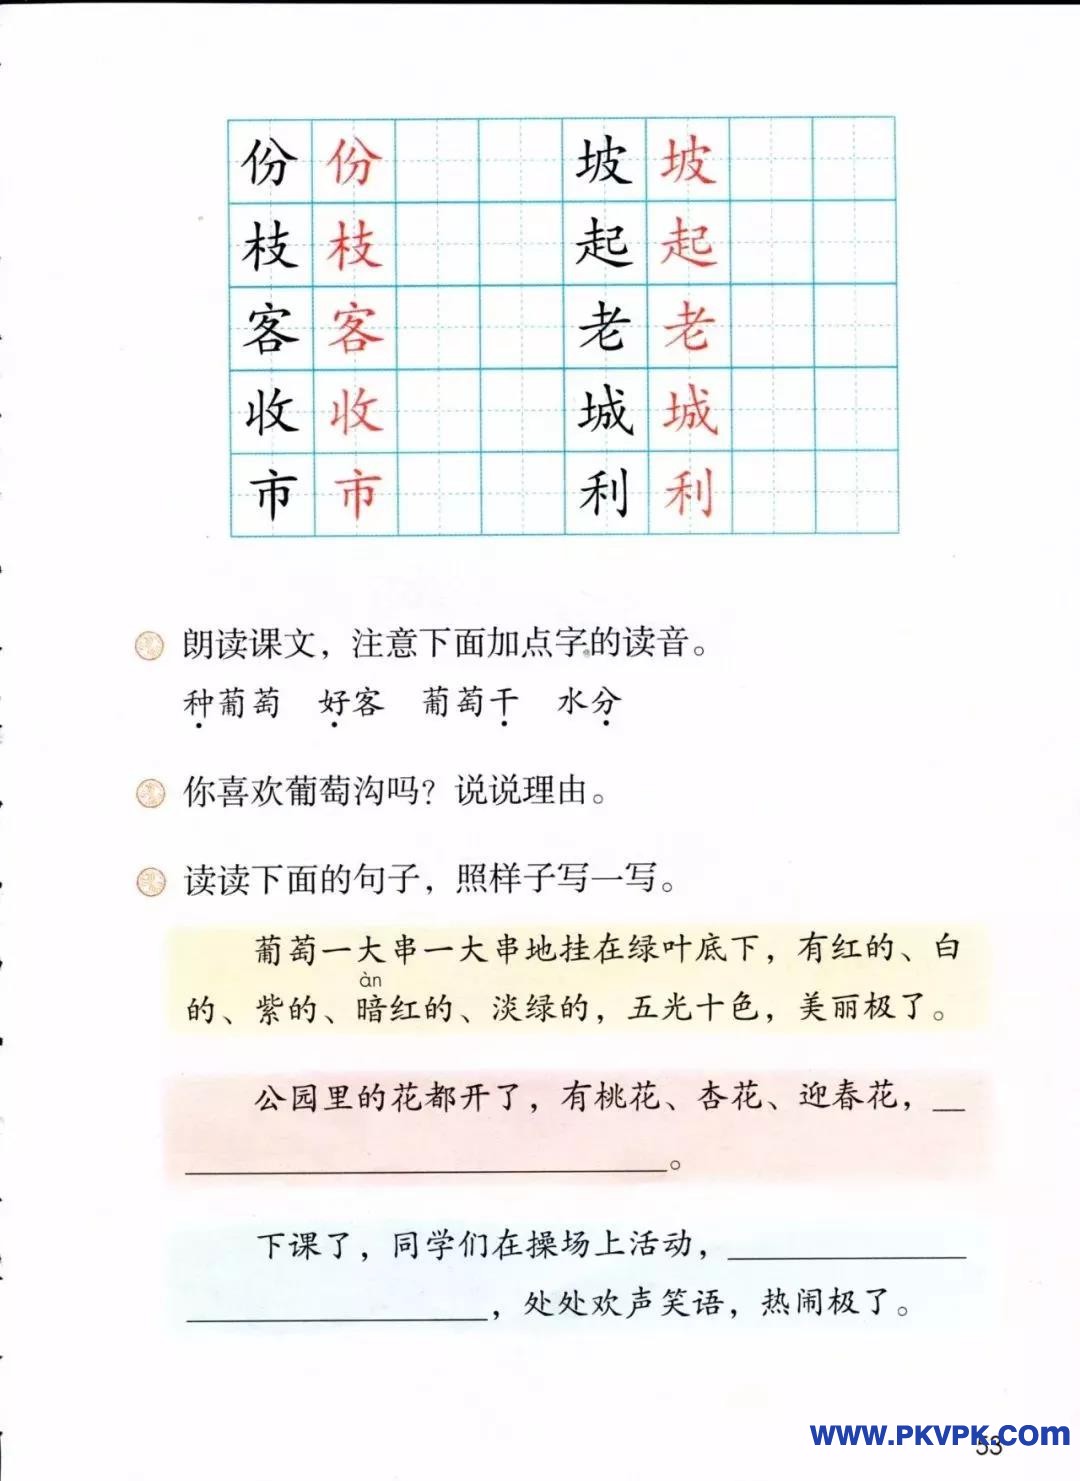 份 份 坡 坡
枝 枝 起 起
客 客 老 老
收 收 城 城
市 市 利 利
朗读课文，注意下面加点字的读音。
种葡萄 好客 葡萄干 水分
你喜欢葡萄沟吗？说说理由。
读读下面的句子，照样子写一写。
葡萄一大串一大串地挂在绿叶底下，有红的、白
àn
的、紫的、暗红的、淡绿的，五光十色，美丽极了。
公园里的花都开了，有桃花、杏花、迎春花，__
____________________________。
下课了，同学们在操场上活动，______________
__________________，处处欢声笑语，热闹极了。
www.PKVPK.com
53